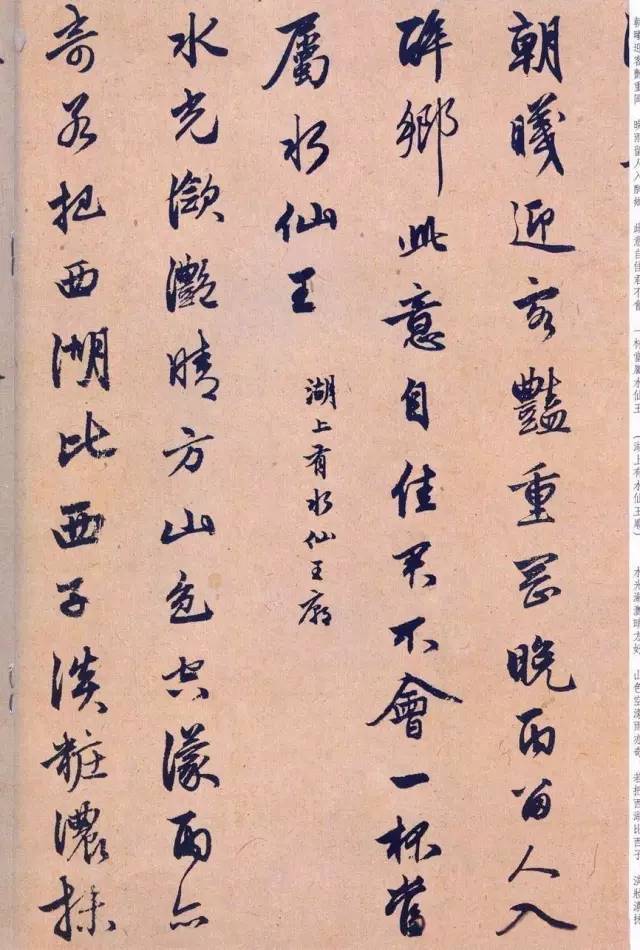 朝曦迎客艷重岡 晚雨留人入醉鄉 此意自佳君不會 一杯當屬水仙王 （湖上有水仙王廟） 水光瀲灩晴方好 山色空濛雨亦奇 若把西湖比西子 淡妝濃抹
朝曦迎客豔重岡晚雨留人入
醉鄉此意自佳君不會一杯當
屬水仙王
湖上有水仙王廟
水光瀲灧晴方山色空濛雨亦
奇若把西湖比西子淡粧濃抹